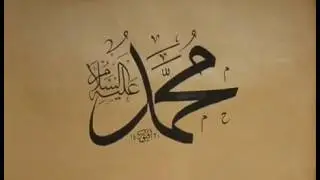 محمّد
عليه السلام
م ح م